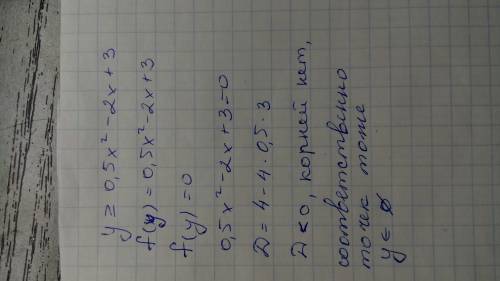 y ≥ 0,5x² - 2x + 3
f(y) = 0,5x² - 2x + 3
f(y) = 0
0,5x² - 2x + 3 = 0
D = 4 - 4 · 0,5 · 3
D < 0, корней нет,
соответственно
точек тоже
y ∈ ∅